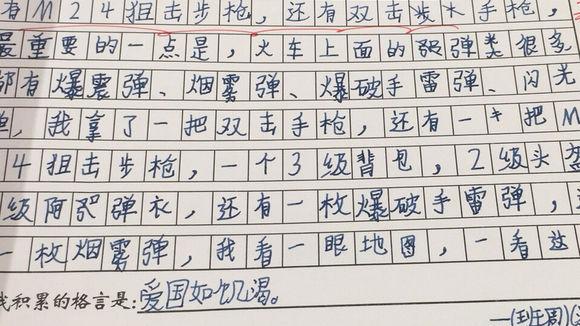 有M24狙击步枪，还有双击手枪，
最重要的一点是，火车上面的弹类很多
都有爆震弹、烟雾弹、爆破手雷弹、闪光
，我拿了一把双击手枪，还有一把M
4狙击步枪，一个3级背包，2级头盔
级阿弹衣，还有一枚爆破手雷弹，
一枚烟雾弹，我看一眼地图，一看这
我积累的格言是：爱国如饥渴。
—(班周)